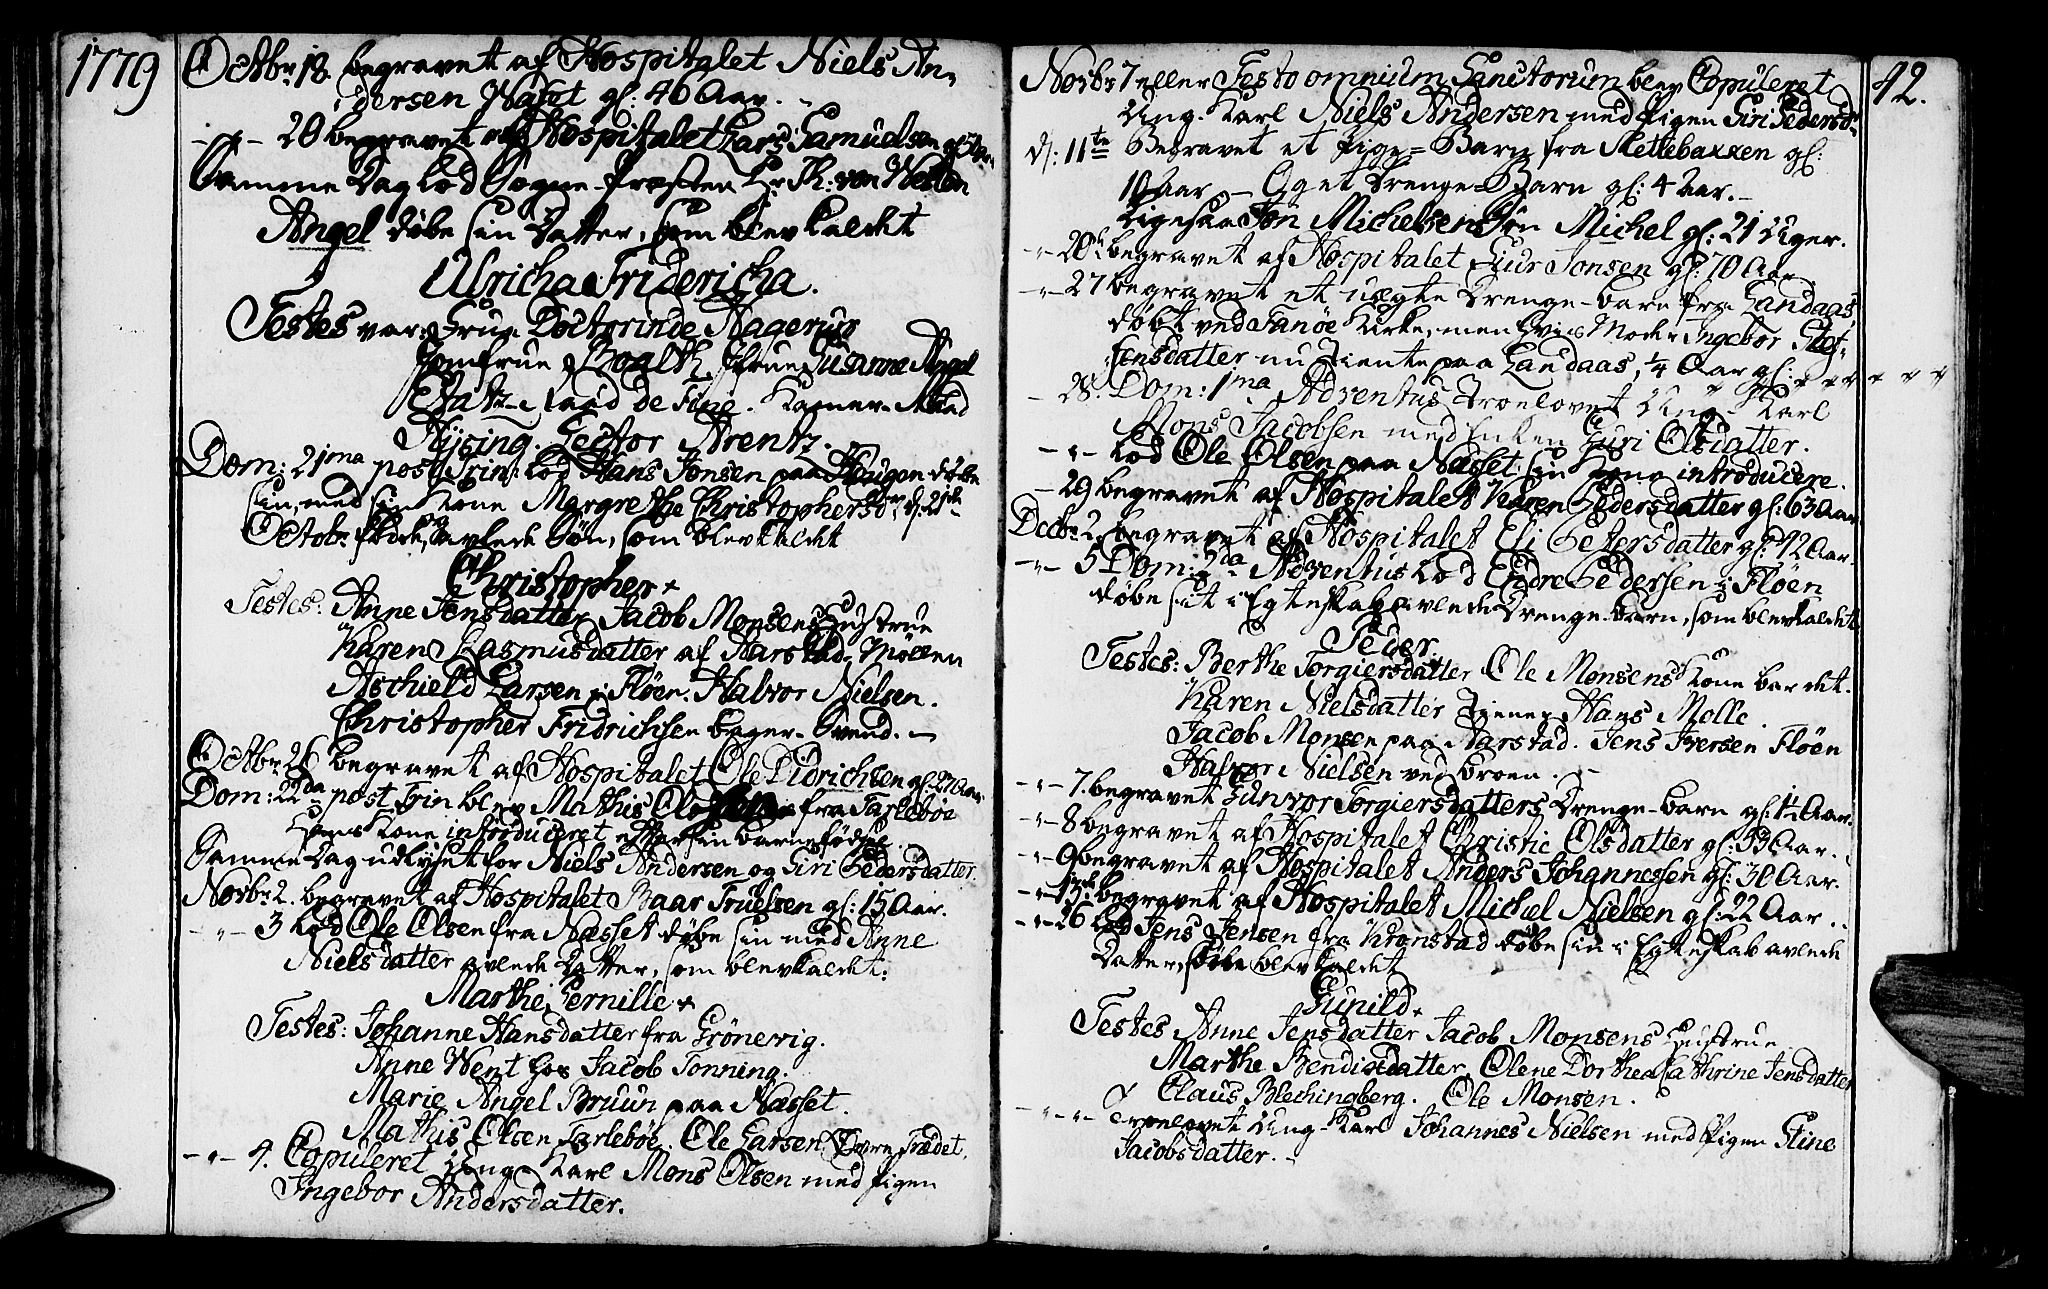 1779
Octbr 18. begravet af Hospitalet Niels An-
dersen Waset gl: 46 Aar.
-"- 20 begravet af Hospitalet Lars Samuelsen gl:
Samme Dag lod Sogne-Præsten Hr Fh: von Westen
Angel døbe sin Datter, som blev kaldet
Ulricha Fridericha.
Testes var Frue Doctorinde Hagerup
Jomfrue Boalth, Frue Susanne Angel
Etatz-Raad de Fine. Kamer-Raad
Rÿsing. Lector Arentz.
Dom: 21ma post Trin: lod Hans Jonsen paa Haugen døbe
sin, med sin Kone Margrethe Christophersdr, d: 21de
Octobr fødde, og avlede Søn, som blev kaldet
Christopher +
Testes: Anne Jensdatter Jacob Monsens Hustrue
Karen Rasmusdatter af Aarstad-Möllen
Aschield Larsen i Flöen. Halvor Nielsen.
Christopher Fridrichsen bager-Svend. -
Octbr 26 begravet af Hospitalet Ole Didrichsen gl: 27 Aar
Dom: 22da post Trin blev Mathis Olsens fra Tarlebøe
Hans Kone introduceret efter sin barnefødsel
Samme Dag udlyset for Niels Andersen og Siri Pedersdatter.
Novbr 2. begravet af Hospitalet Baar Truelsen gl: 15 Aar.
-"- 3 Lod Ole Olsen fra Næsset døbe sin med Anne
Nielsdatter avlede Datter, som blev kaldet:
Marthe Pernille +
Testes: Johanne Hansdatter fra Grönevig.
Anne Went hos Jacob Tonning.
Marie Angel Bruun paa Næsset.
Mathis Olsen Tarlebøe. Ole Larsen Øvre Frædet.
-"- 4. Copuleret Ung-Karl Mons Olsen med Pigen
Ingebor Andersdatter.
42.
Novbr 7 eller Festo omnium Sanctorum blev Copuleret
Ung-Karl Niels Andersen med Pigen Siri Pedersdr
d: 11te Begravet et Pige-Barn fra Slettebakken gl:
10 Aar - Og et Drenge-Barn gl: 4 Aar. -
Ligesaa Jon Michelsens Søn Michel gl: 21 Uger.
-"- 20de begravet af Hospitalet Siur Jonsen gl: 70 Aar
-"- 27 begravet et uægte Drenge-barn fra Landaas
døbt ved Fanøe Kirke, men hvis Moder Ingebor Stef-
fensdatter nu tiente paa Landaas, 1/4 Aar gl:
- 28. Dom: 1ma Adventus Troelovet Ung-Karl
Mons Jacobsen med Enken Guri Olsdatter.
-"- Lod Ole Olsen paa Næsset sin Kone introducere.
- 29 begravet af Hospitalet Karen Pedersdatter gl: 63 Aar
Decbr 2. begravet af Hospitalet Eli Petersdatter gl: 72 Aar.
-"- 5 Dom: 2da Adventus Lod Endre Pedersen i Flöen
døbe sit i Egteskab avlede Drenge-barn, som blev kaldet
Peder.
Testes: Berthe Torgiersdatter Ole Monsens Kone bar det.
Karen Nielsdatter Tiener Hans Molle.
Jacob Monsen paa Aarstad. Jens Iversen Flöen
Halvor Nielsen ved broen. -
-"- 7. begravet Gunvor Torgiersdatters Drenge-barn gl: 1/4 Aar.
-"- 8 begravet af Hospitalet Christie Olsdatter gl: 33 Aar.
-"- 9 begravet af Hospitalet Anders Johannessen gl: 30 Aar.
-"- 13de begravet af Hospitalet Michel Nielsen gl: 22 Aar.
-"- 26 Lod Jens Jensen fra Kronstad døbe sin i Egteskab avlede
Datter, som blev kaldet
Gunild +
Testes Anne Jensdatter Jacob Monsens Hustrue
Marthe Bendixdatter, Olene Dorthea Cathrine Jensdatter
Claus Blechingberg. Ole Monsen.
-"-"- Troelovet Ung-Karl Johannes Nielsen med Pigen Stine
Jacobsdatter. -